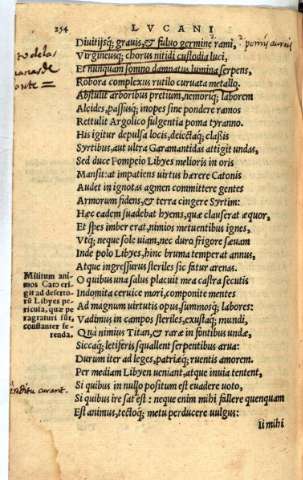 254 LVCANI
Diuitijsq; grauis, & fuluo germine rami,
Virgineusq; chorus nitidi custodia luci,
Et nunquam somno damnatus lumina serpens,
Robora complexus rutilo curuata metallo.
Abstulit arboribus pretium, nemoriq; laborem
Alcides, passusq; inopes sine pondere ramos
Rettulit Argolico fulgentia poma tyranno.
His igitur depulsa locis, eiectaq; classis
Syrtibus, aut ultra Garamantidas attigit undas,
Sed duce Pompeio Libyes melioris in oris
Mansit: at impatiens uirtus hærere Catonis
Audet in ignotas agmen committere gentes
Armorum fidens, & terra cingere Syrtim:
Hæc eadem suadebat hyems, quæ clauserat æquor,
Et spes imber erat, nimios metuentibus ignes,
Vtq; neque sole uiam, nec duro frigore sæuam
Inde polo Libyes, hinc bruma temperat annus,
Atque ingressurus steriles sic fatur arenas.
Militum animos Cato erigit
O quibus una salus placuit mea castra secutis
Indomita ceruice mori, componite mentes
Ad magnum uirtutis opus, summosq; labores:
Vadimus in campos steriles, exustaq; mundi,
Qua nimius Titan, & raræ in fontibus undæ,
Siccaq; letiferis squallent serpentibus arua:
Durum iter ad leges, patriæq; ruentis amorem.
Per mediam Libyen ueniant, atque inuia tentent,
Si quibus in nullo positum est euadere uoto,
Si quibus ire sat est: neque enim mihi fallere quenquam
Est animus, tectoq; metu perducere uulgus:
Ii mihi